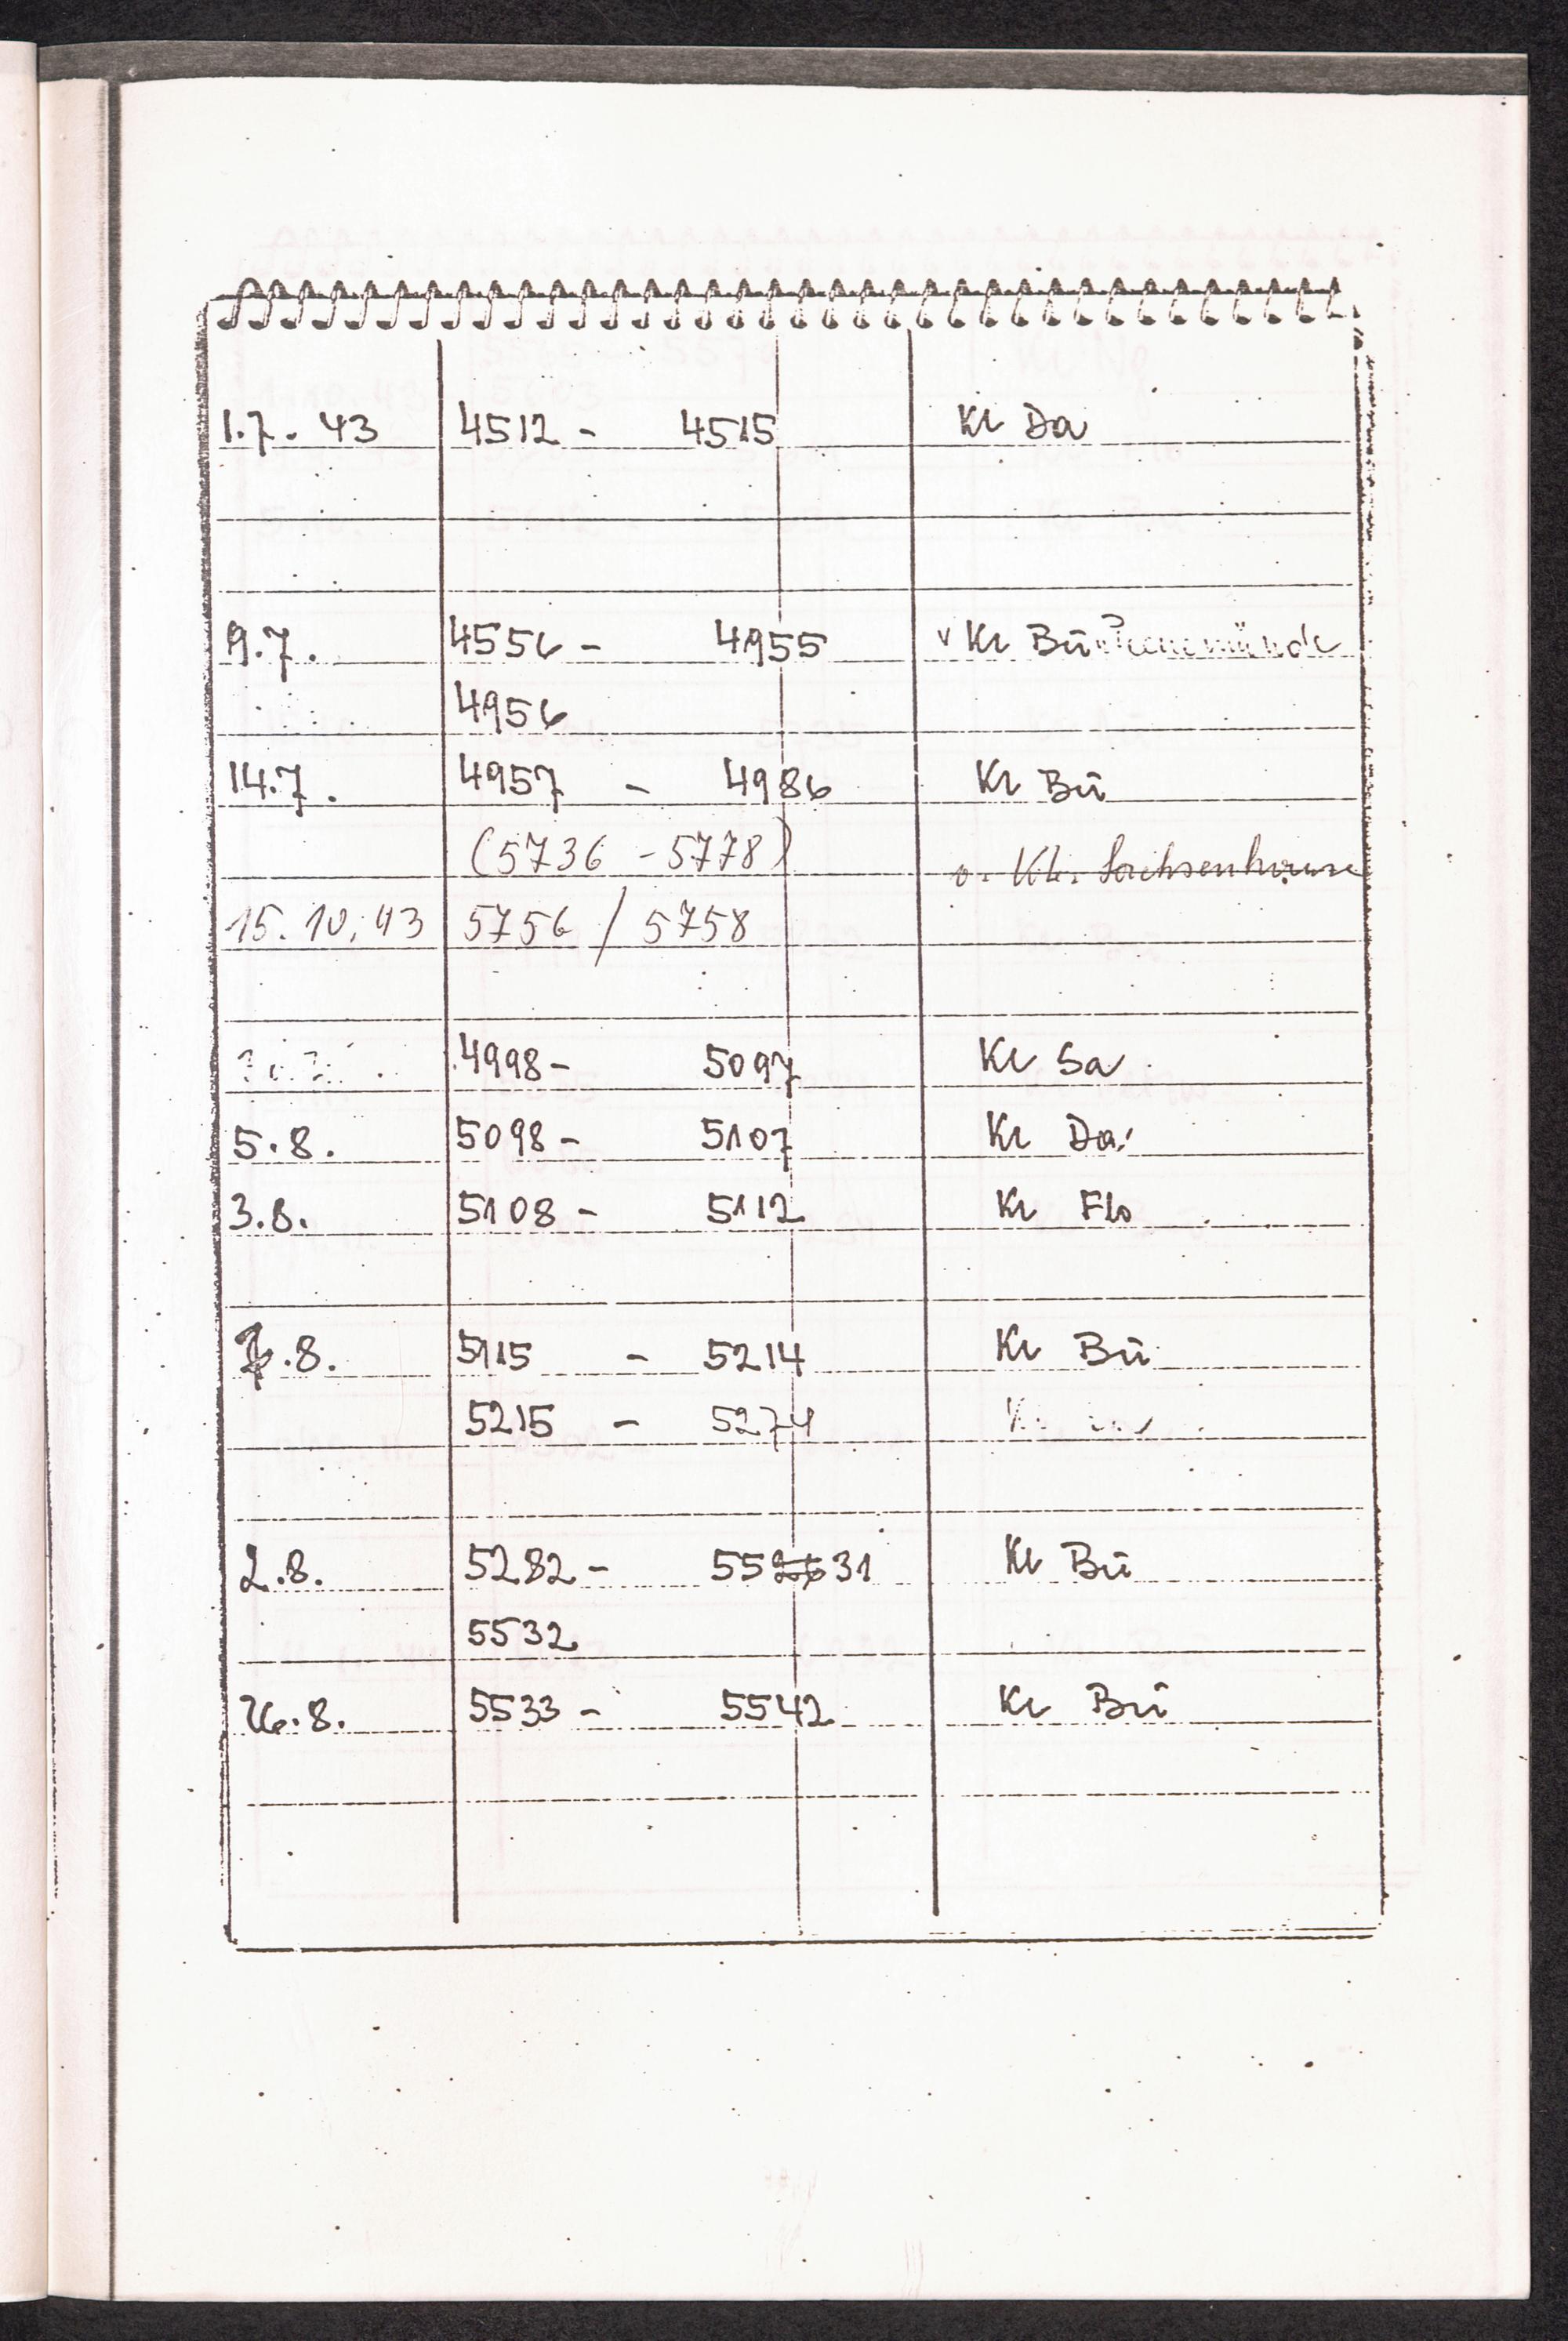 1.7. 43 4512 - 4515 KL Da
9.7. 4556 - 4955 v KL Bu Peenemünde
4956
14.7. 4957 - 4986 KL Bū
(5736 - 5778) v. KL. Sachsenhausen
15.10.43 5756 / 5758
4998 - 5097 KL Sa
5.8. 5098 - 5107 KL Da
3.8. 5108 - 5112 KL Flo
.8. 5115 - 5214 KL Bū
5215 - 5274
2.8. 5282 - 5531 KL Bū
5532
26.8. 5533 - 5542 KL Bū